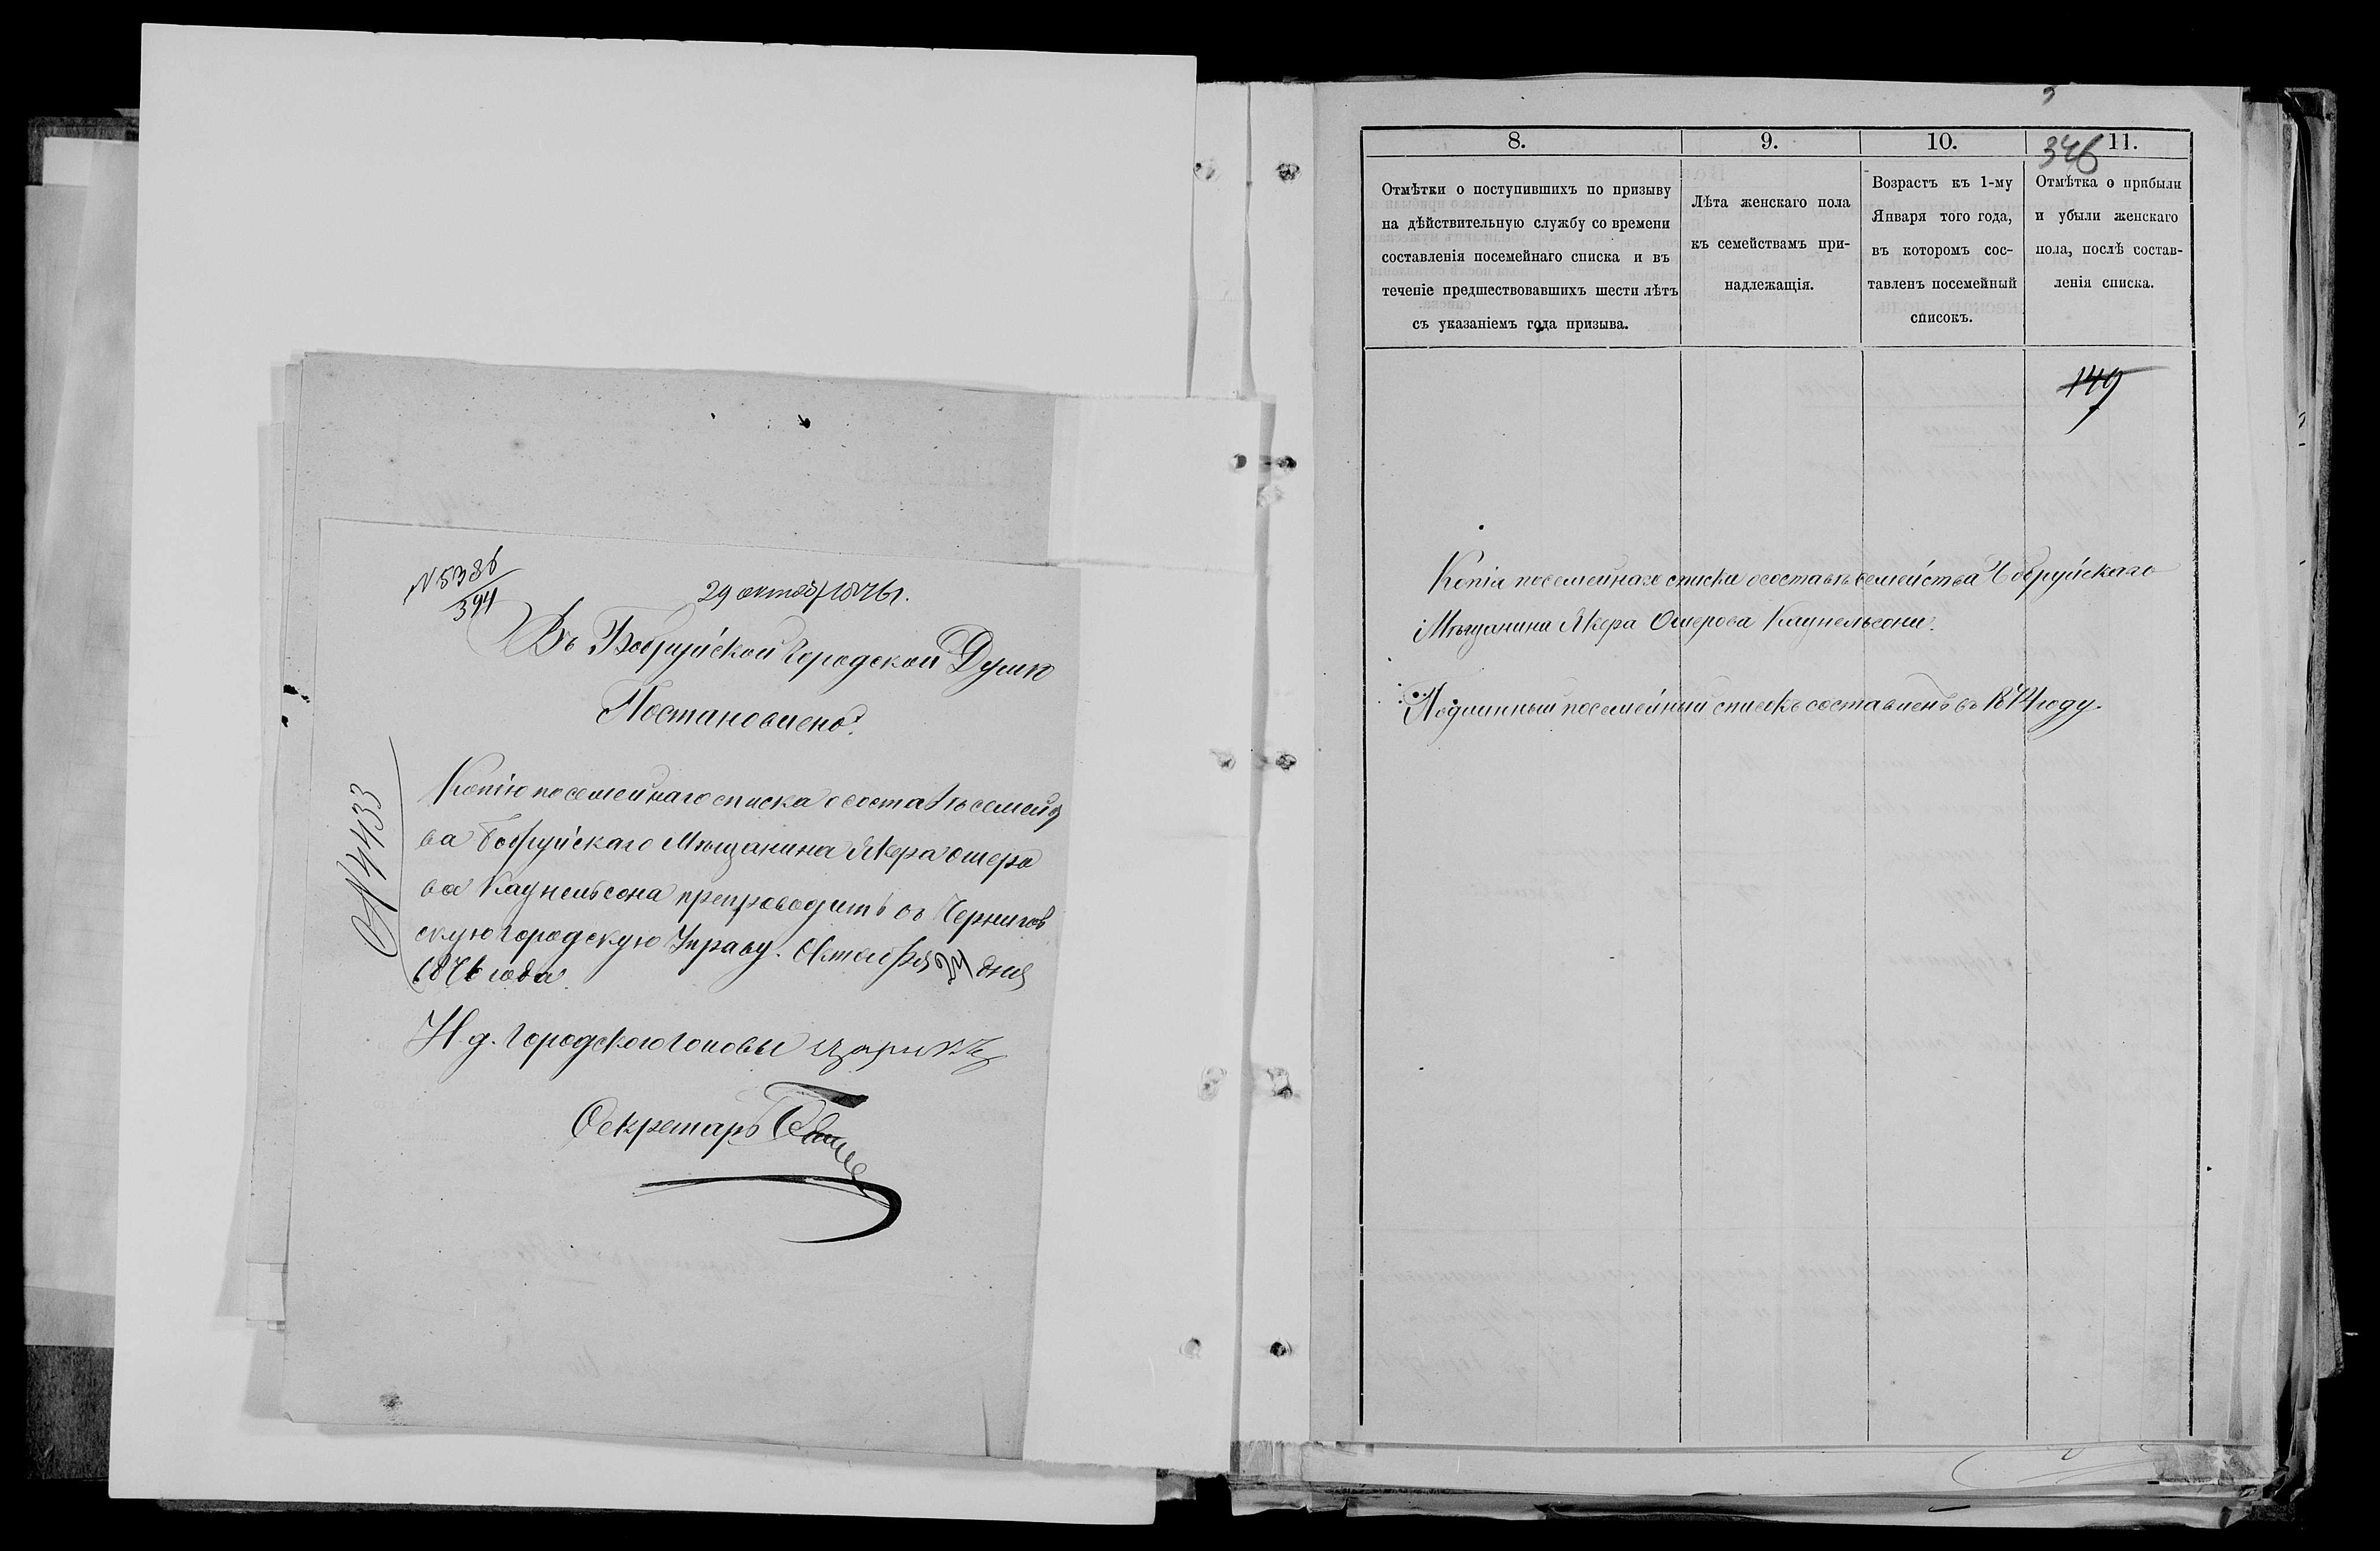 N 5386
394
29 октяб 1876 г.
Въ Бобруйской Городской Думѣ
Постановлено:
N 4433
Копію посемейнаго списка о составѣ семейст
ва Бобруйскаго Мѣщанина Якера Ошеро
ва Кацнельсона препроводить въ Чернигов
скую городскую Управу. Октября 24 дня
1876 года.
И. д. Городского Головы
Секретарь
346
8.
9.
10.
11.
Отмѣтки о поступившихъ по призыву
на дѣйствительную службу со времени
составленія посемейнаго списка и въ
теченіе предшествовавшихъ шести лѣтъ
съ указаніемъ года призыва.
Лѣта женскаго пола
къ семействамъ при-
надлежащія.
Возрастъ къ 1-му
Января того года,
въ которомъ сос-
тавленъ посемейный
списокъ.
Отмѣтка о прибыли
и убыли женскаго
пола, послѣ состав-
ленія списка.
149
Копія посемейнаго списка о составѣ семейства Бобруйскаго
Мѣщанина Якера Ошерова Кацнельсона.
Подлинный посемейный списокъ составленъ въ 1874 году.